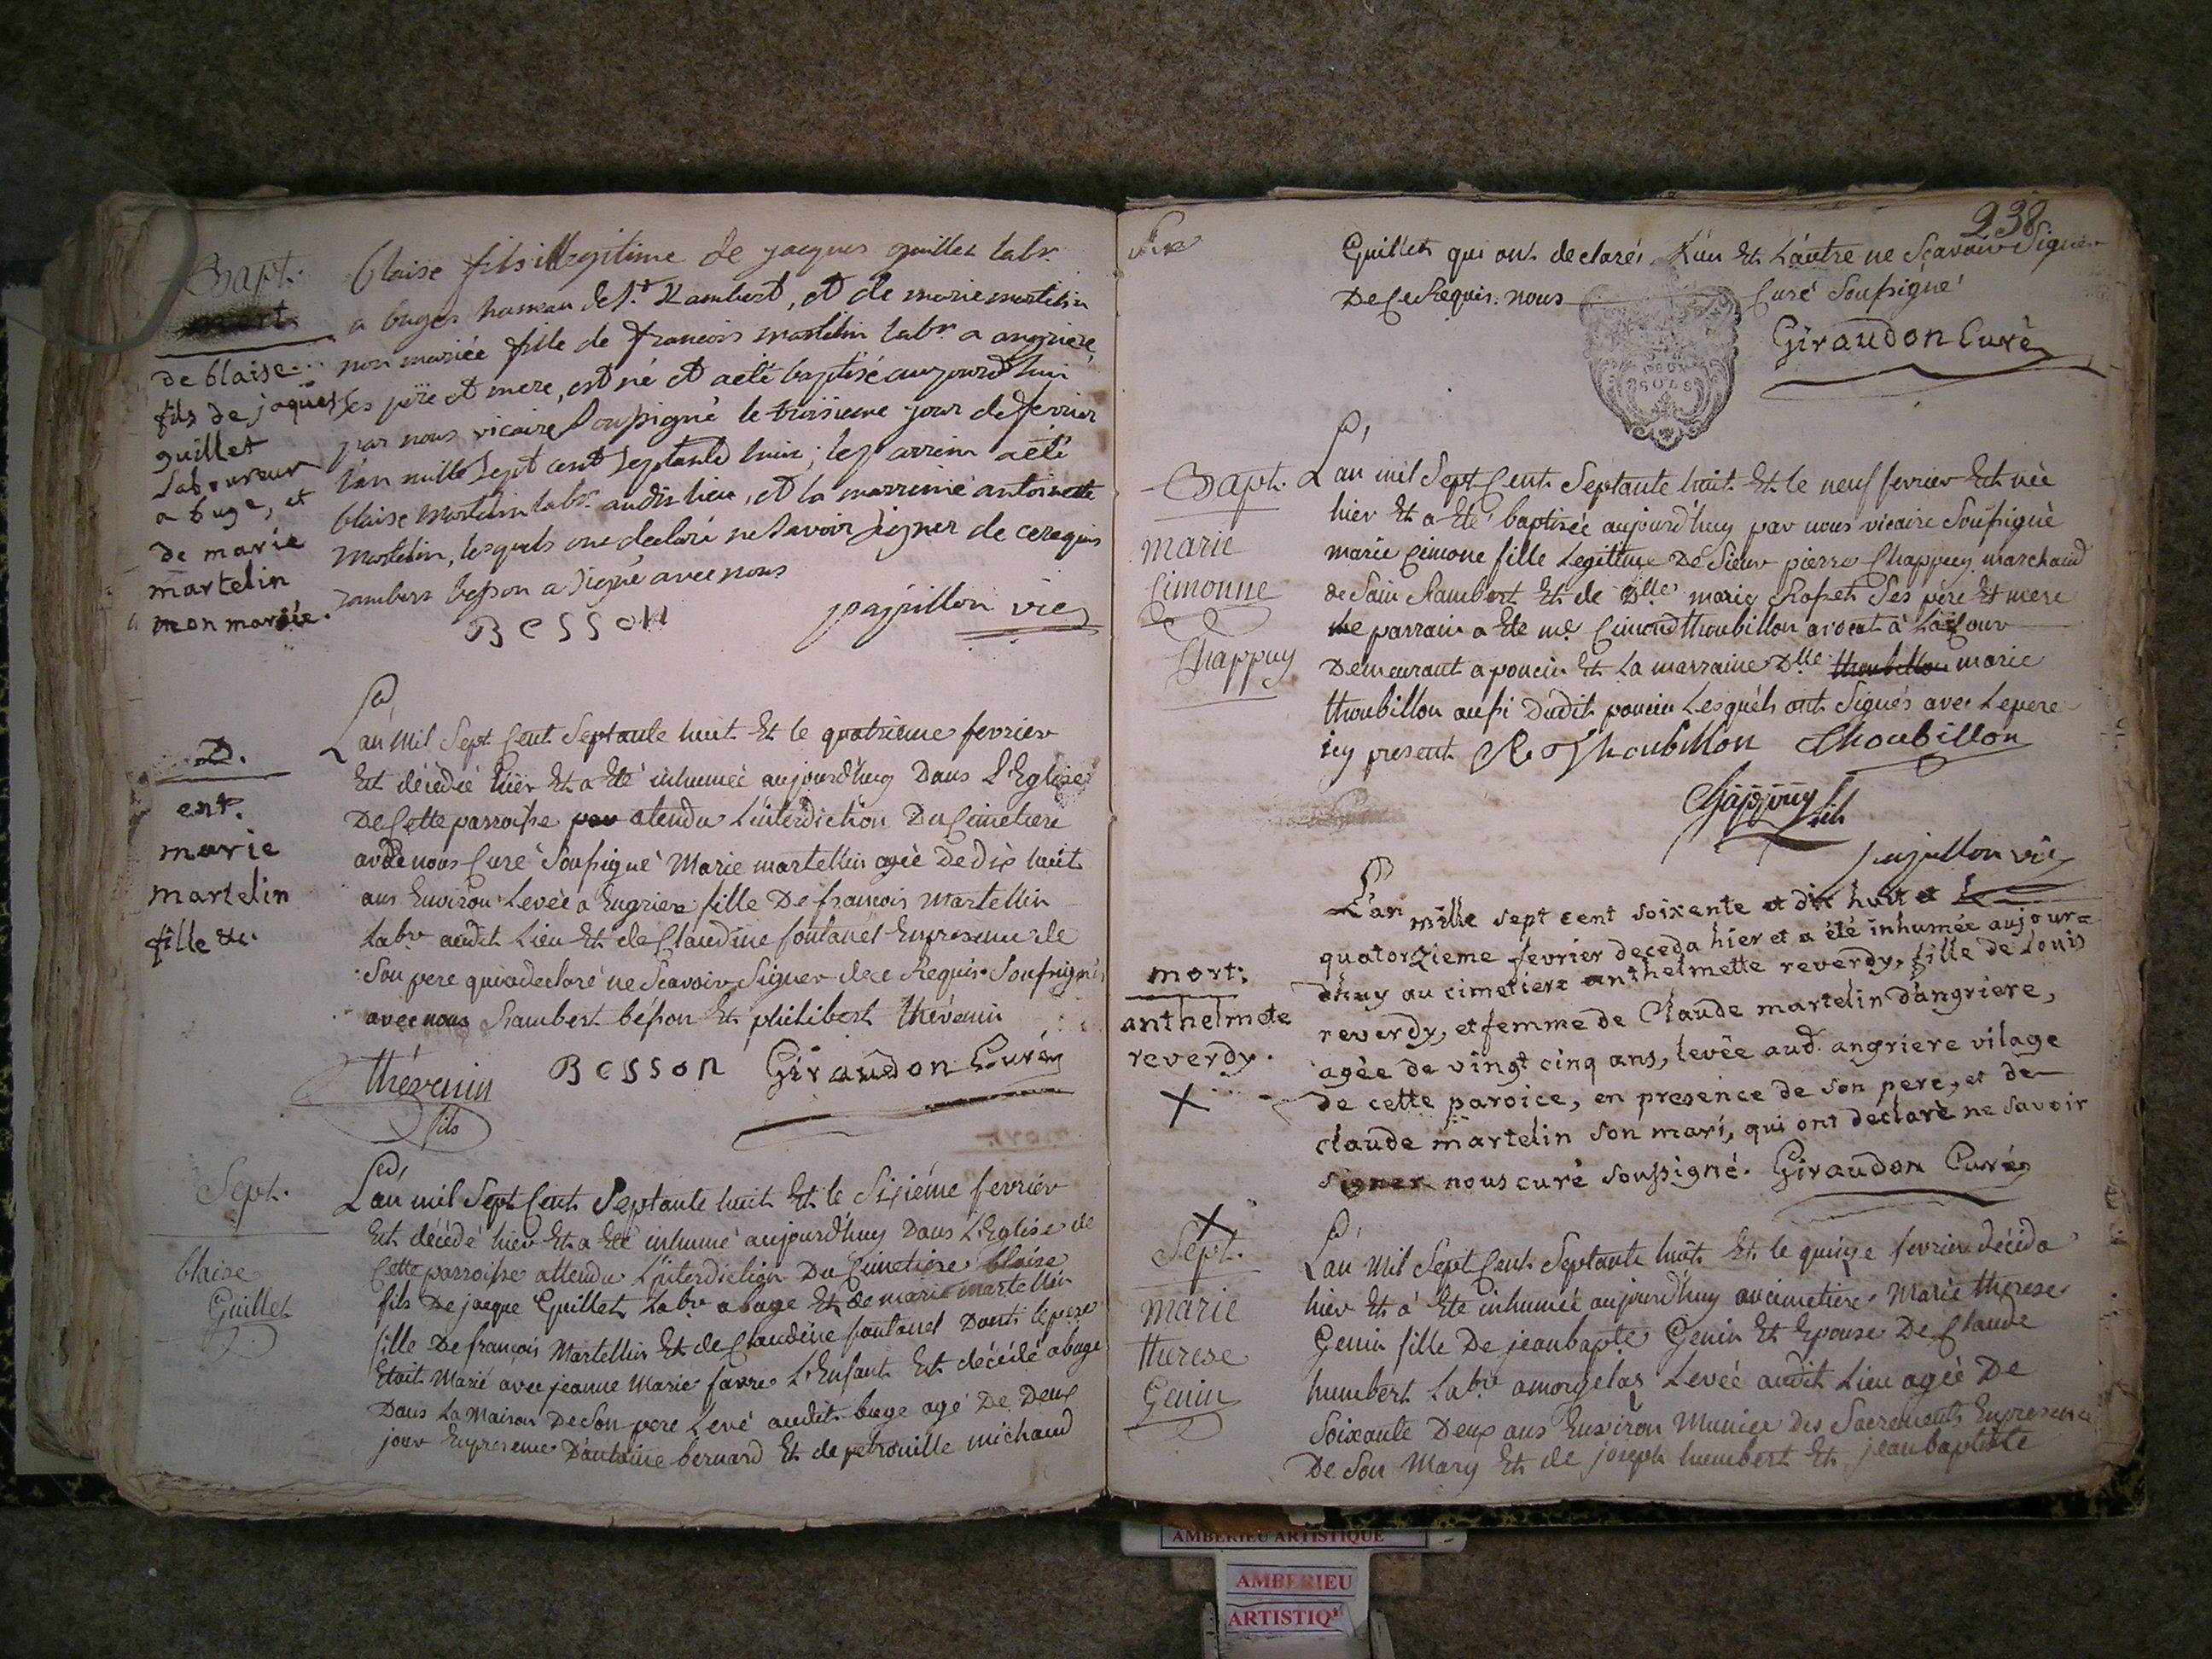 Bapt.
de blaise
fils de jaques
guillet
Laboureur
a buge, et
de marie
martelin
non mariée.
blaise fils illegitime de jacques guillet labr.
a buges hameau de St. Rambert, et de marie martelin
non mariée fille de francois martelin labr a angriere
ses père et mere, est né et a eté baptisé aujourd'hui
par nous vicaire soussigné le troisieme jour de fevrier
l'an mille sept cent septante huit; le parrein a eté
blaise martelin labr. audit lieu, et la marreine antoinette
martelin, lesquels ont declaré ne savoir signer de ce requis
rambert besson a signé avec nous
Besson papillon vic
D.
ent.
marie
martelin
fille &c.
L'an mil Sept Cent Septante huit Et le quatrieme fevrier
Est décédée hier Et a Eté inhumée aujourd'huy Dans L'Eglise
De Cette parroisse atendu L'interdiction Du Cimetiere
de nous Curé Soussigné Marie martellin agée De dix huit
ans Environ Levée a Engriere fille De francois Martellin
Labr audit Lieu Et de Claudine fontanel En presence de
Son pere qui a declaré ne Scavoir Signer de ce Requis Soussignés
avec nous Rambert bésson Et philibert thévenin
thévenin fils Besson Giraudon Curé
Sept.
blaise
Guillet
L'an mil Sept Cent Septante huit Et le Sixiéme fevriér
Est décédé hier Et a Eté inhumé aujourd'huy Dans L'Eglise de
Cette parroisse attendu L'interdiction Du Cimetiere blaise
fils De jacque Guillet Labr a buge Et de marie martellin
fille De francois Martellin Et de Claudine fontanel Dont le pere
Etait Marié avec jeanne Marie favre L'Enfant Est décédé a buge
Dans La Maison De Son pere Levé audit buge agé De Deux
jour En presence D'antoine bernard Et de petronille michaud
238
Guillet qui ont declaré L'un Et L'autre ne Scavoir Signer
De Ce Requis. nous Curé Soussigné
Giraudon Curé
Bapt.
marie
Cimonne
Chappuy
L'an mil Sept Cent Septante huit Et le neuf fevrier Est née
hier Et a Eté baptisée aujourd'huy par nous vicaire Soussigné
marie Cimone fille Legitime De Sieur pierre Chappuy marchand
de Sain Rambert Et de Dlle marie Ses père Et mere
le parrain a Eté me Cimond thoubillon avocat à La Cour
Demeurant a poncin Et La marraine Dlle thoubillon marie
thoubillon aussi Dudit poncin Lesquéls ont Signés avec Le pere
icy present Thoubillon Thoubillon
Chappuy fils
papillon vic
mort:
anthelmete
reverdy.
L'an mille sept cent soixente et dix huit et le
quatorzieme fevrier deceda hier et a été inhumée aujour=
d'huy au cimetiere anthelmette reverdy, fille de Louis
reverdy, et femme de Claude martelin d'angriere,
agée de vingt cinq ans, levée aud. angriere vilage
de cette paroice, en presence de son pere, et de
claude martelin son mari, qui ont declaré ne savoir
signer nous curé soussigné. Giraudon Curé
Sept.
Marie
therese
Genin
L'an Mil Sept Cent Septante huit Et le quinze fevrier décéda
hier Et a Eté inhumée aujourd'huy au cimetiere Marie therese
Genin fille De jean bapte Genin Et Epouse De Claude
humbert Labr a Levée audit Lieu agée De
Soixante Deux ans Environ Munie des Sacrements En presence
De Son Mary Et de joseph humbert Et jean baptiste
AMBERIEU ARTISTIQUE
AMBERIEU
ARTISTIQ